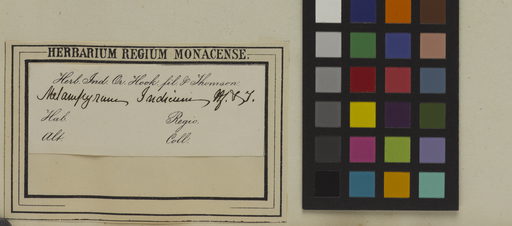 HERBARIUM REGIUM MONACENSE.
Herb. Ind. Or. Hook. fil. & Thomson.
Melampyrum Indicum H. f. & T.
Hab. Regio.
Alt. Coll.